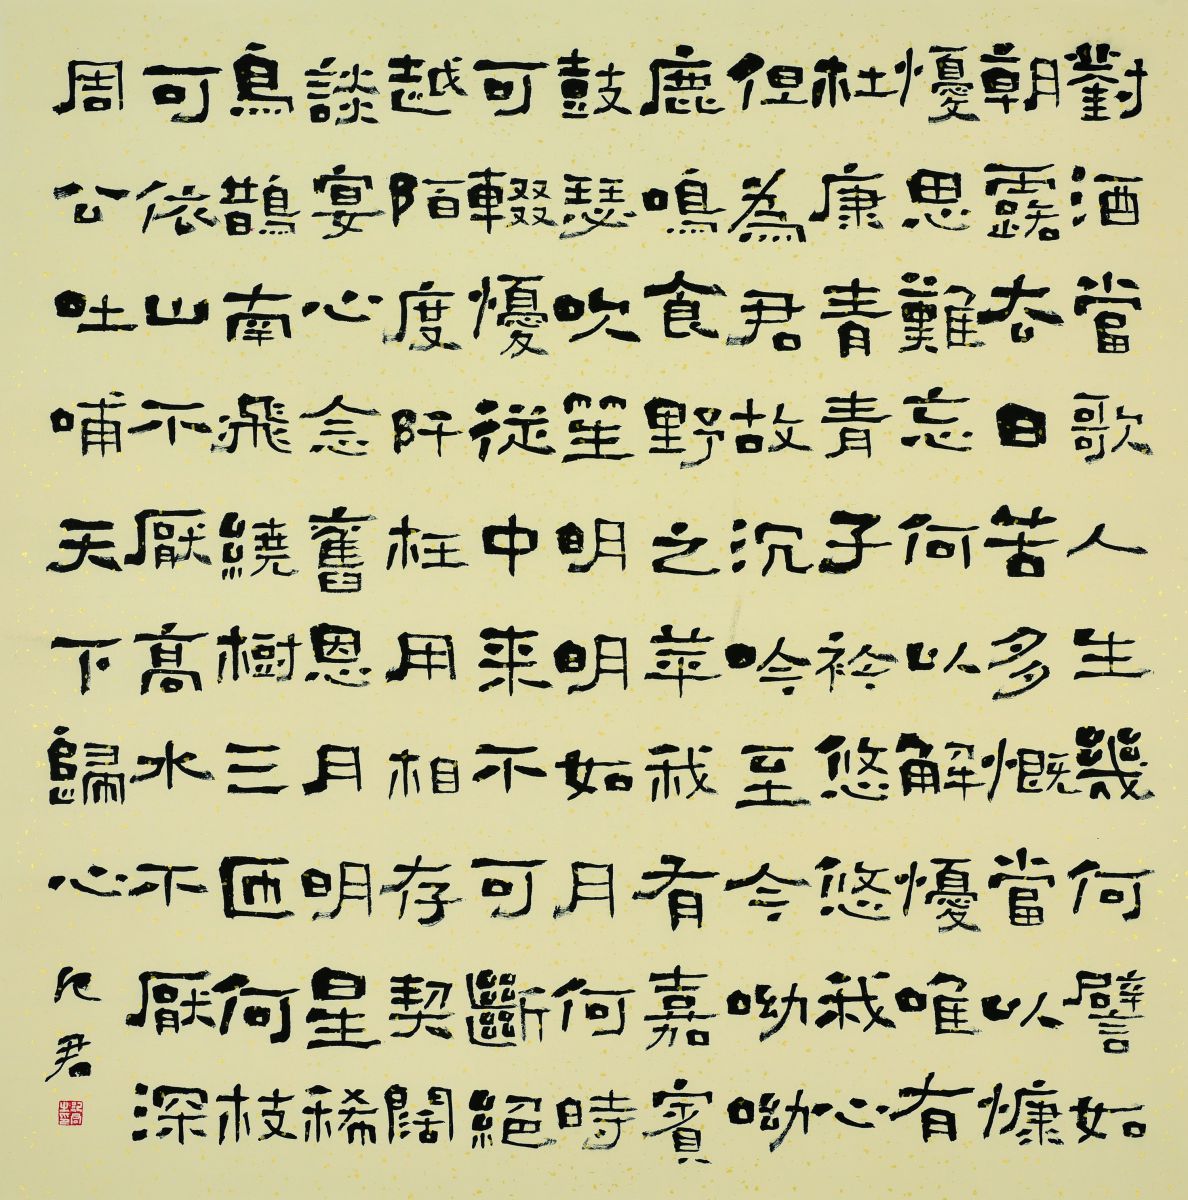 對酒當歌人生幾何譬如
朝露去日苦多慨當以慷
懮思難忘何以解懮唯有
杜康青青子衿悠悠我心
但為君故沉吟至今呦呦
鹿鳴食野之苹我有嘉賓
鼓瑟吹笙明明如月何時
可輟懮從中来不可斷絕
越陌度阡枉用相存契闊
談宴心念舊恩月明星稀
烏鵲南飛繞樹三匝何枝
可依山不厭高水不厭深
周公吐哺天下歸心
君